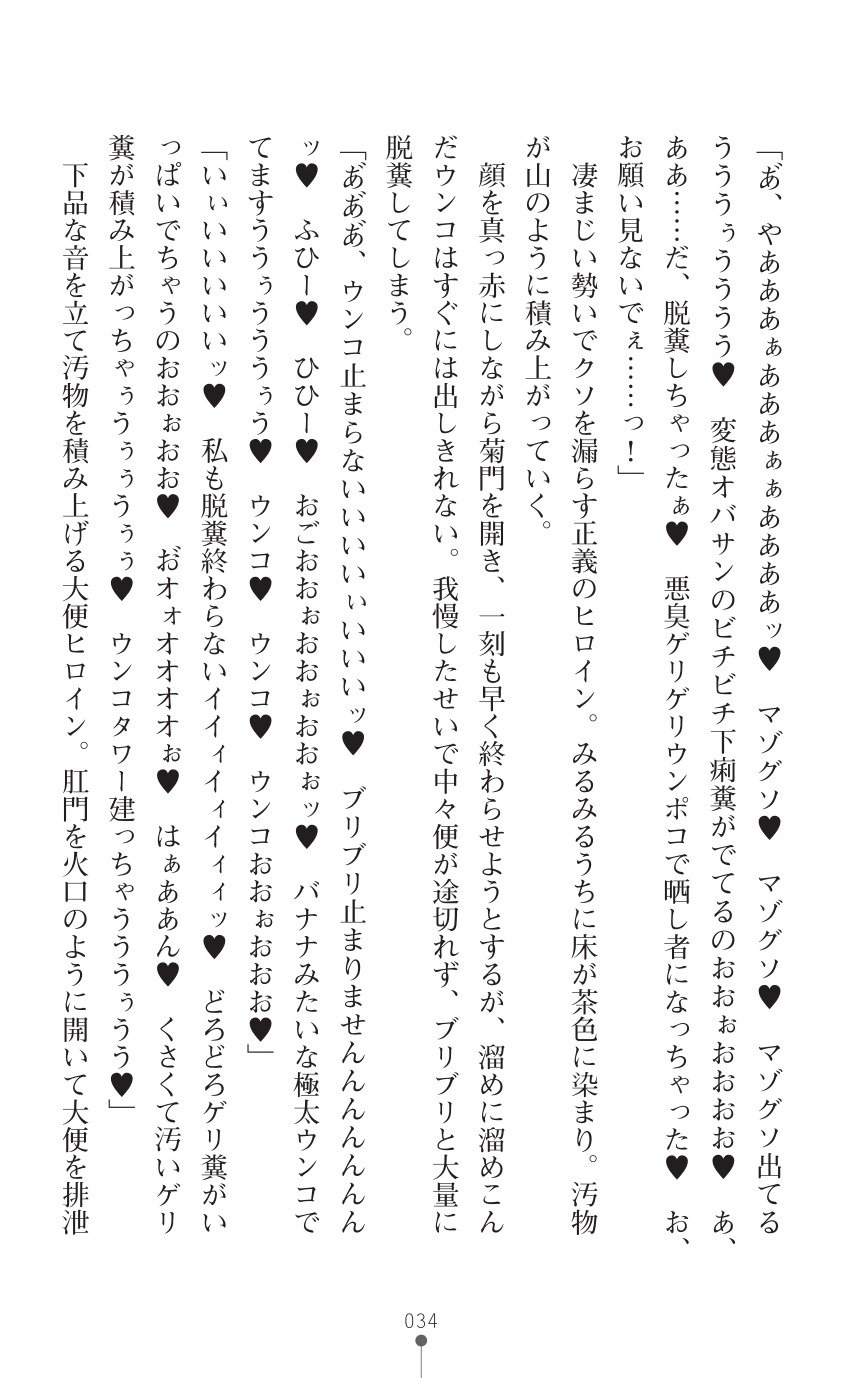 「あ゛、やあああぁあああぁぁああああッ♥　マゾグソ♥　マゾグソ♥　マゾグソ出てる
うううぅうううう♥　変態オバサンのビチビチ下痢糞がでてるのおおぉおおおお♥　あ、
ああ……だ、脱糞しちゃったぁ♥　悪臭ゲリゲリウンポコで晒し者になっちゃった♥　お、
お願い見ないでぇ……っ！」
　凄まじい勢いでクソを漏らす正義のヒロイン。みるみるうちに床が茶色に染まり。汚物
が山のように積み上がっていく。
　顔を真っ赤にしながら菊門を開き、一刻も早く終わらせようとするが、溜めに溜めこん
だウンコはすぐには出しきれない。我慢したせいで中々便が途切れず、ブリブリと大量に
脱糞してしまう。
「あ゛あ゛あ゛、ウンコ止まらないいいいいぃいいいいッ♥　ブリブリ止まりませんんんんんんんん
ッ♥　ふひー♥　ひひー♥　おごおおぉおおぉおおぉッ♥　バナナみたいな極太ウンコで
てますううぅうううぅう♥　ウンコ♥　ウンコ♥　ウンコおおぉおおお♥」
「いぃいいいいいッ♥　私も脱糞終わらないイイィイィイィィッ♥　どろどろゲリ糞がい
っぱいでちゃうのおおぉおお♥　お゛オォオオオオぉ♥　はぁああん♥　くさくて汚いゲリ
糞が積み上がっちゃぅうぅぅうぅぅ♥　ウンコタワー建っちゃうううぅうう♥」
　下品な音を立て汚物を積み上げる大便ヒロイン。肛門を火口のように開いて大便を排泄
034